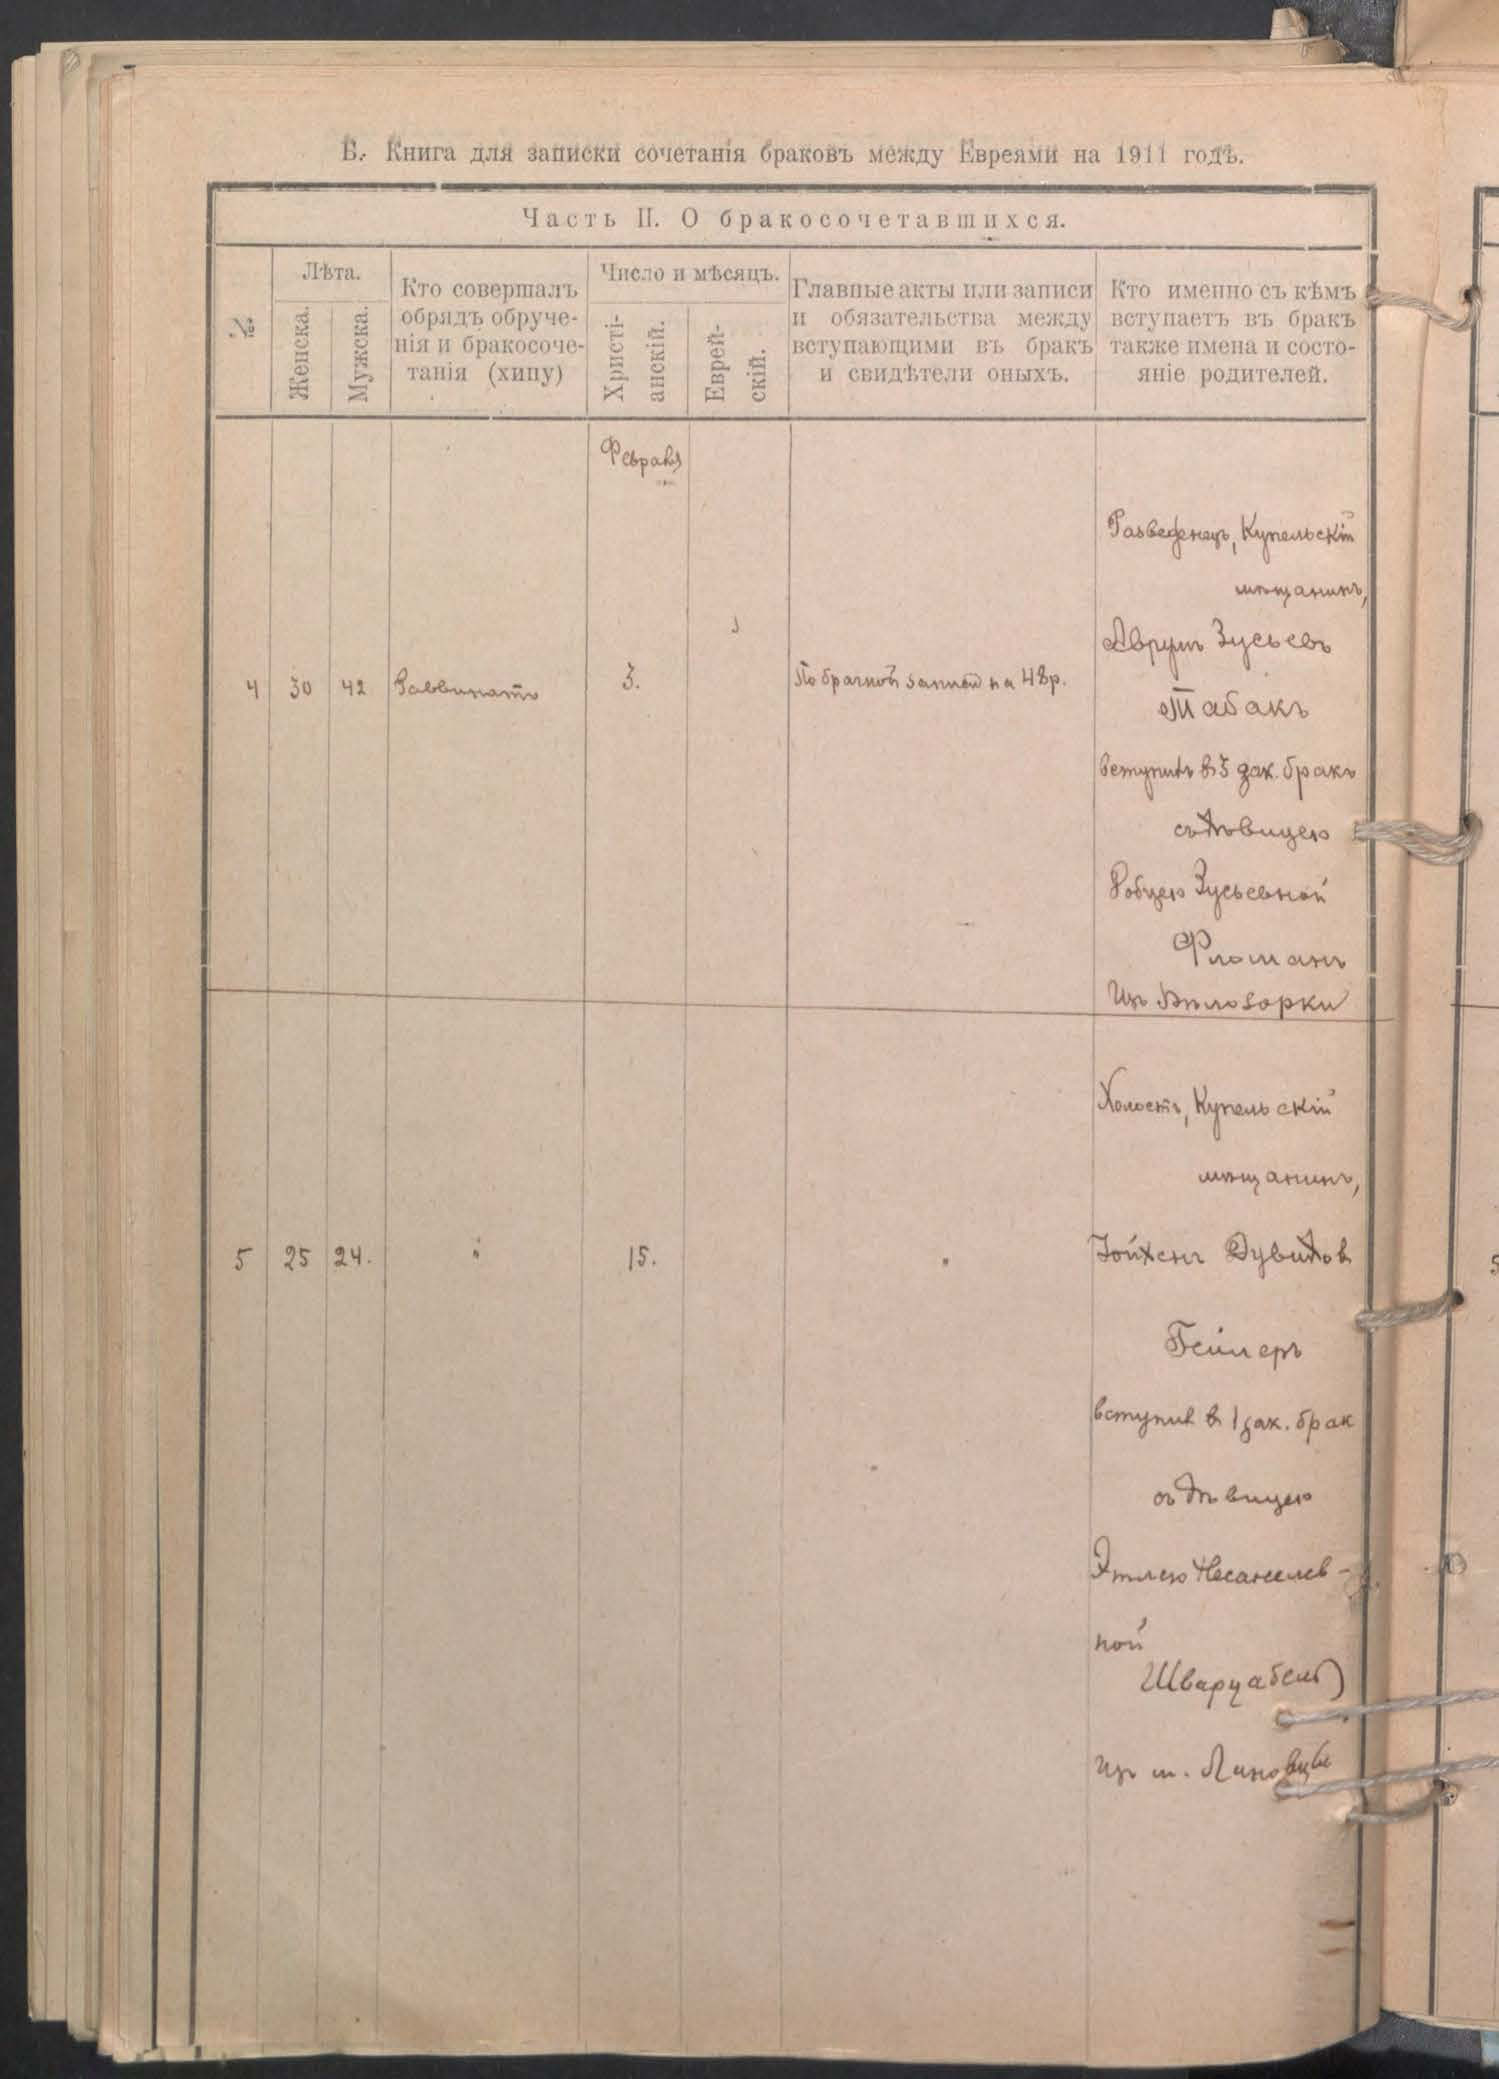 Б. Книга для записки сочетанія браковъ между Евреями на 1911 годъ.
Часть II. О бракосочетавшихся.
№
Лѣта.
Женска.
Мужска.
Кто совершалъ
обрядъ обруче-
нія и бракосоче-
танія (хипу)
Число и мѣсяцъ.
Христі-
анскій.
Еврей-
скій.
Главные акты или записи
и обязательства между
вступающими въ бракъ
и свидѣтели оныхъ.
Кто именно съ кѣмъ
вступаетъ въ бракъ
также имена и состо-
яніе родителей.
Февраля
4 30 42 Раввинатъ 3. По брачной записи на 48р.
Разведенецъ, Купельскій
мѣщанинъ,
Аврумъ Зусьевъ
Табакъ
вступилъ въ 3 зак. бракъ
съ дѣвицею
Зусьевной
Изъ Бѣлозорки
5 25 24. " 15. "
Холостъ, Купельскій
мѣщанинъ,
Іойхенъ Дувидов
Гейлеръ
вступил въ 1 зак. брак
съ дѣвицею
Этлею Несанелев-
ной
Шварцабель
изъ м.
5